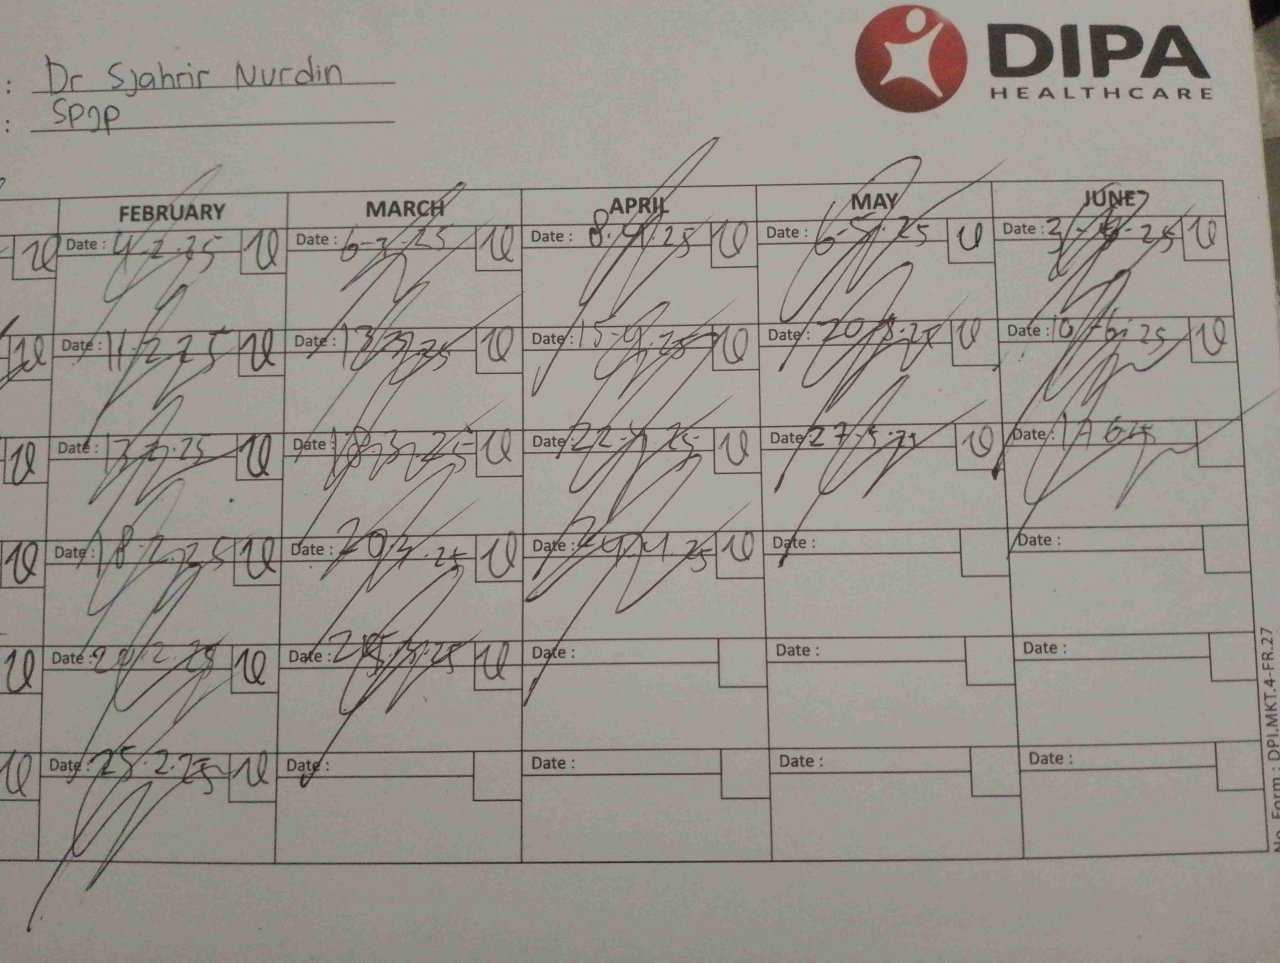 DIPA
HEALTHCARE
: Dr Sjahrir Nurdin
: SpJp
FEBRUARY MARCH APRIL MAY JUNE
Date : 4.2.25 Date : 6-3-25 Date : 8.4.25 Date : 6-5-25 Date : 3-6-25
Date : 11.2.25 Date : 13.3.25 Date : 15-4.25 Date : 20.5.25 Date : 10-6-25
Date : 13.2.25 Date : 18.3.25 Date : 22-4.25 Date : 27.5.25 Date : 17.6.25
Date : 18.2.25 Date : 20.3.25 Date : 24.4.25 Date : Date :
Date : 20.2.25 Date : 25.3.25 Date : Date : Date :
Date : 25.2.25 Date : Date : Date : Date :
No. Form : DPI.MKT.4-FR.27